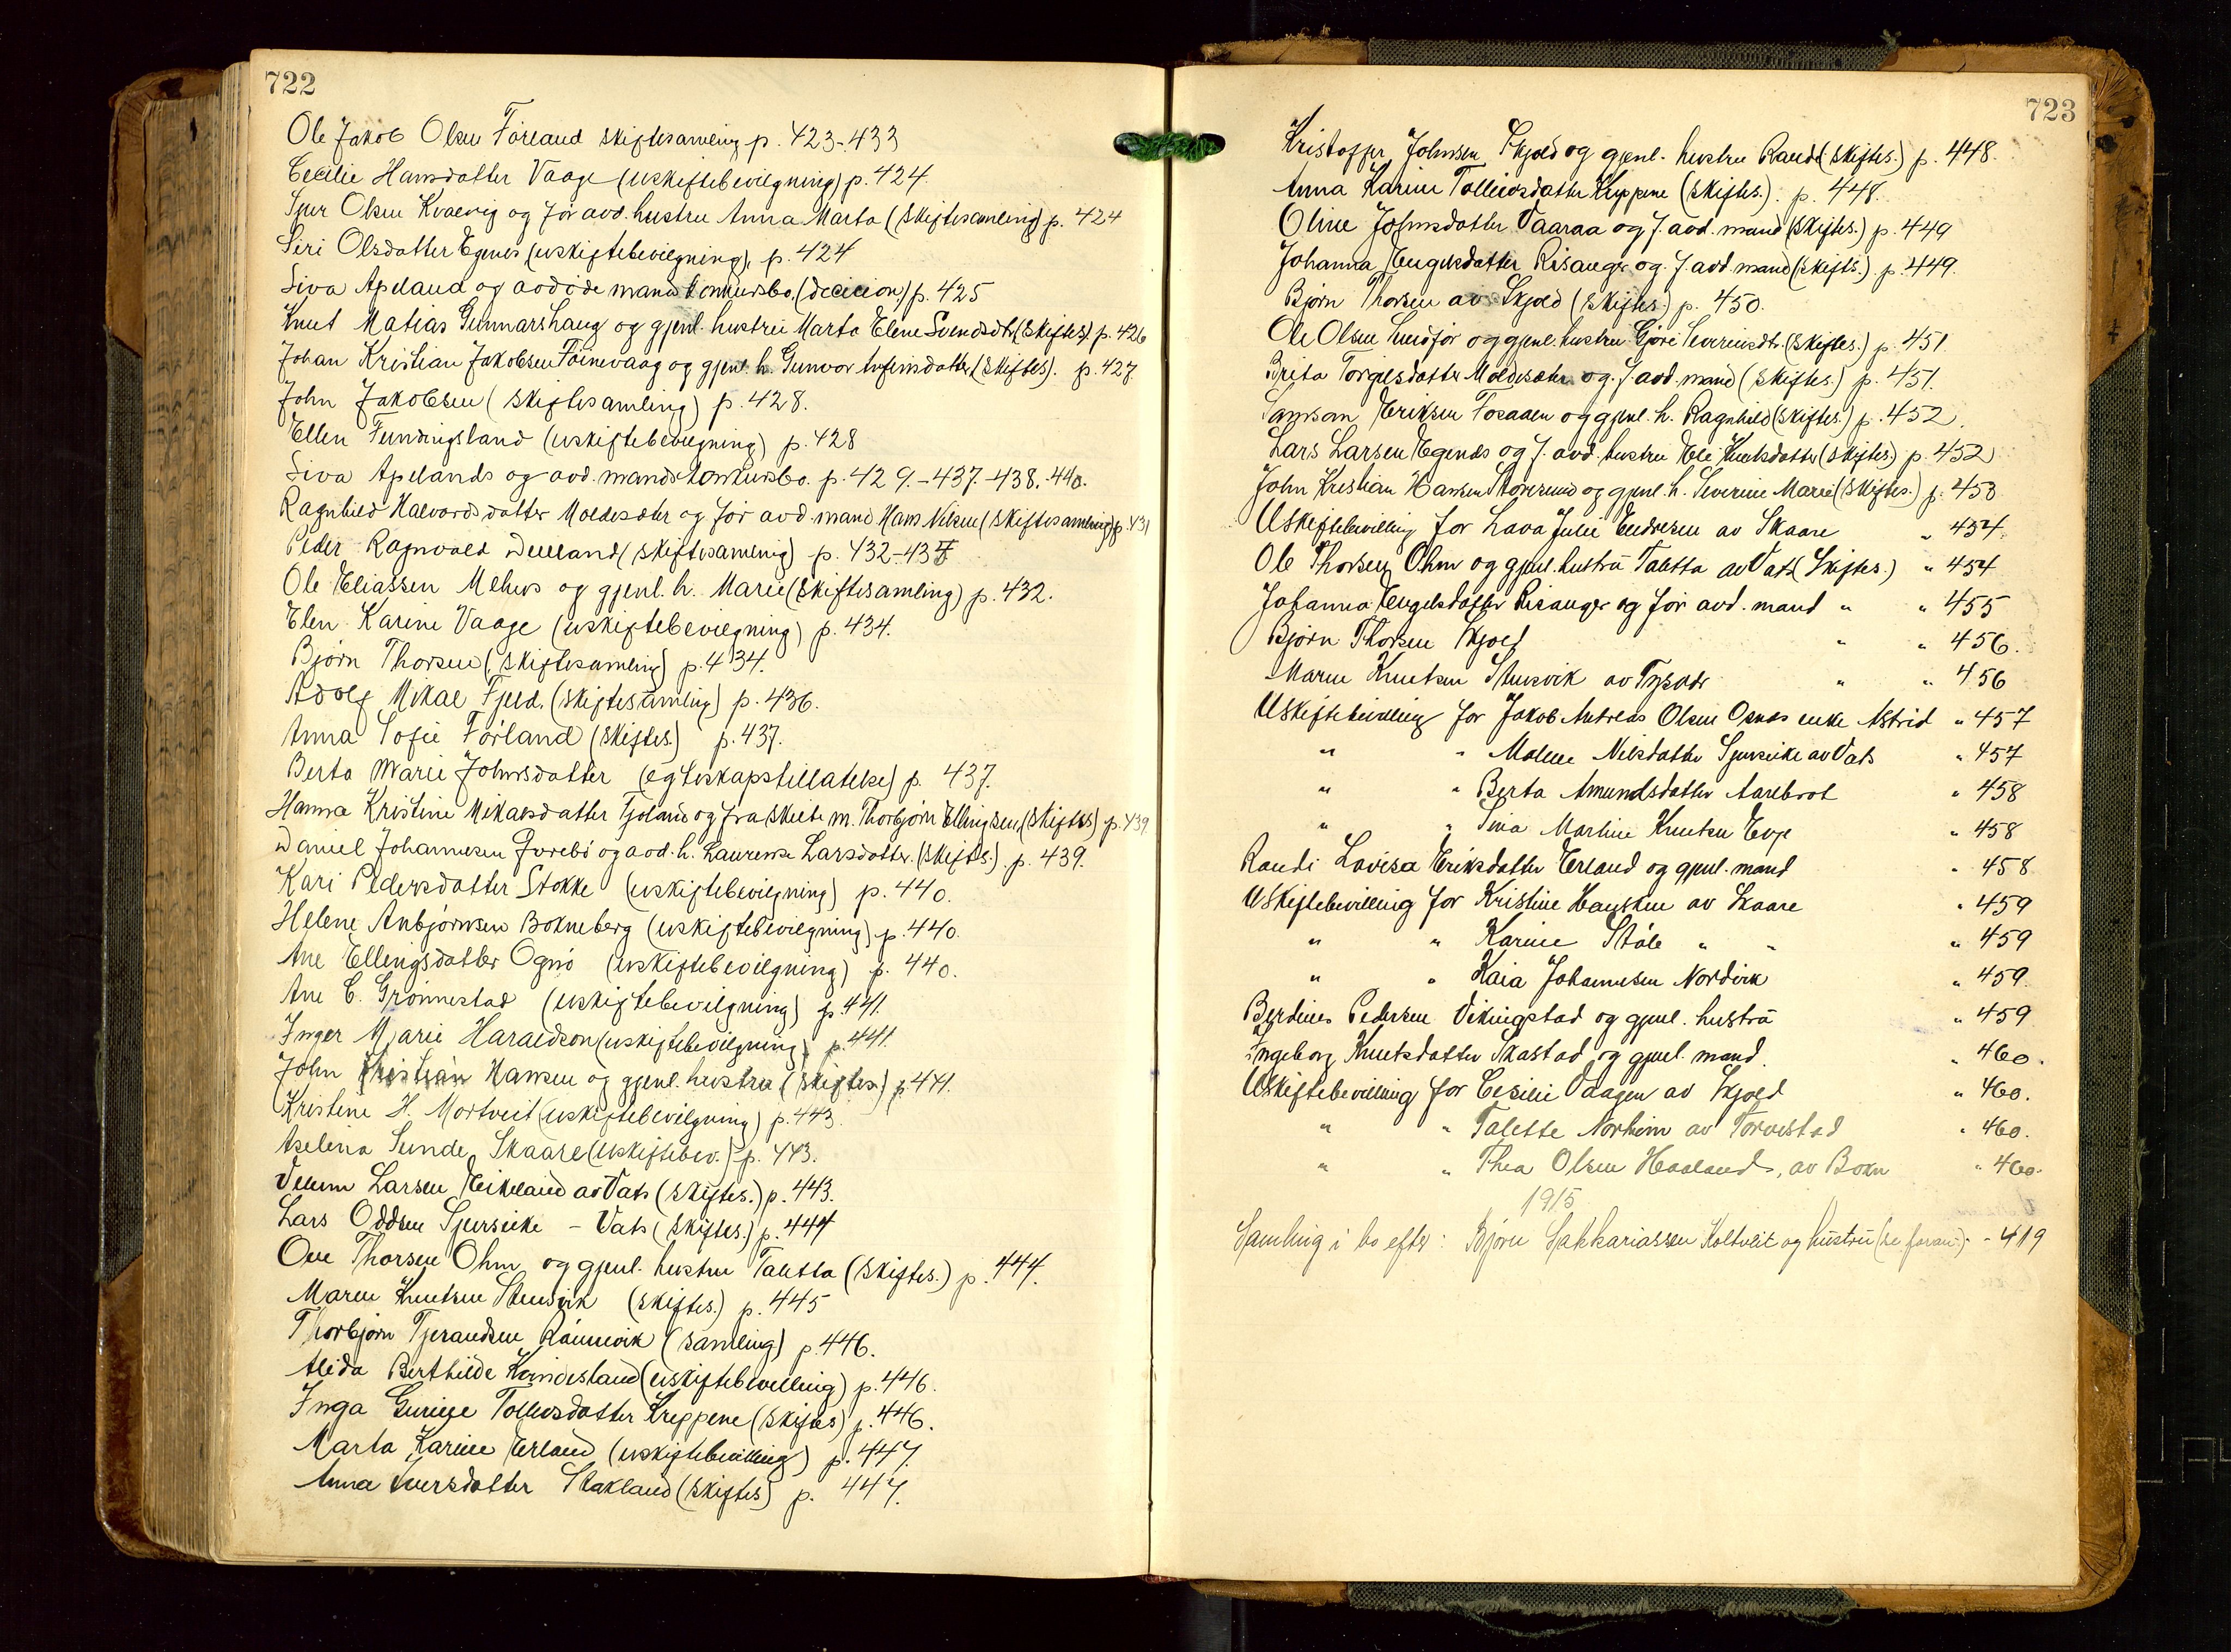 722
Ole Jakob Olsen Förland skiftesamling p. 423-433
Cecilie Hansdatter Vaage (uskiftebevilgning) p. 424
Sjur Olsen Kvalevig og før avd. hustru Anna Marta (Skiftesamling) p. 424
Siri Olsdatter Egenes (uskiftebevilgning), p. 424
Siva Apeland og avdöde mands konkursbo, (decision) p. 425
Knut Matias Gunnarshaug og gjenl. hustru Marta Elene Svendsdtr. (Skiftes). p. 426
Johan Kristian Jakobsen Föinevaag og gjenl. h. Gunvor Arfinsdatter (Skiftes). p. 427
John Jakobsen (Skiftesamling) p. 428.
Ellen Fundingsland (uskiftebevilgning) p. 428
Siva Apelands og avd. mands konkursbo. p. 429.-437.-438.-440.
Ragnhild Halvordsdatter Moldesæter og før avd. mand Hans Nilsen (Skiftesamling) p. 431
Peder Ragnvald Dueland (Skiftesamling) p. 432-437
Ole Eliassen Mehus og gjenl. h. Marie (Skiftesamling) p. 432.
Elen Karine Vaage (uskiftebevilgning) p. 434.
Björn Thorsen (Skiftesamling) p. 434.
Adolf Mikal Fjeld. (Skiftesamling) p. 436.
Anna Sofie Förland (Skiftes.) p. 437.
Berta Marie Johnsdatter (egteskapstillatelse) p. 437.
Hanna Kristine Mikalsdatter Fjoland og fraskilte m. Thorbjørn Ellingsen (Skiftes) p. 439
Daniel Johannesen Förebö og avd. h. Laurense Larsdatter. (Skiftes.). p. 439.
Kari Pedersdatter Stokke (uskiftebevilgning) p. 440.
Helene Anbjörnsen Bokneberg (uskiftebevilgning) p. 440.
Ane Ellingsdatter Ognö (uskiftebevilgning) p. 440.
Ane C. Grönnestad (uskiftebevilgning) p. 441.
Inger Marie Haraldson (uskiftebevilgning) p. 441.
John Kristian Hansen og gjenl. hustru (Skiftes) p. 441.
Kristine H. Mortveit (uskiftebevilgning) p. 443.
Aselina Sunde, Skaare (uskiftebev.) p. 443.
Velum Larsen Eikeland av Vats (Skiftes.) p. 443.
Lars Oddsen Sjurseike - Vats (Skiftes.) p. 444
Ove Thorsen Ohm og gjenl. hustru Taletta (Skiftes.) p. 444.
Maren Knutsen Stensvik (Skiftes.) p. 445
Thorbjørn Tjerandsen Rönnevik (samling) p. 446.
Alida Berthilde Kvindesland (uskiftebevilling) p. 446.
Inga Gurine Tollevsdatter Kreppene (Skiftes) p. 446.
Marta Karine Erland (uskiftebevilling) p. 447.
Anna Iversdatter Stakland (Skiftes) p. 447.
723
Kristoffer Johnsen Skjold og gjenl. hustru Randi (Skiftes.) p. 448.
Anna Karine Tolleivsdatter Kreppene (Skiftes.). p. 448.
Oline Johnsdatter Vaaraa og f. avd. mand (Skiftes.) p. 449
Johanna Engelsdatter Risanger og f. avd. mand (Skifts.). p. 449.
Björn Thorsen av Skjold (Skiftes.) p. 450.
Ole Olsen Lundför og gjenl. hustru Gjöre Severinsdtr. (Skiftes.) p. 451
Brita Torgilsdatter Moldesæter og f. avd. mand (Skiftes.) p. 451.
Samson Eriksen Fosaaen og gjenl. h. Ragnhild (Skiftes.) p. 452.
Lars Larsen Egenes og f. avd. hustru Eli Knutsdatter (Skiftes.) p. 452
John Kristian Hansen Storesund og gjenl. h. Severine Marie (Skiftes.) p. 453
Uskiftebevilling for Lava Julie Endresen av Skaare " 454.
Ole Thorsen Ohm og gjenl. hustru Taletta av Vats (Skiftes.) " 454
Johanna Engelsdatter Risanger og för avd. mand " " 455
Björn Thorsen Skjold " " 456.
Maren Knutsen Stensvik av Tysvær " " 456
Uskiftebevilling for Jakob Andreas Olsen Osnes enke Astrid " 457
" " Malene Nilsdatter Sjurseike av Vats " 457
" " Berta Amundsdatter Aarebrot " 458
" " Sina Martine Knutsen Evje " 458
Randi Lovisa Eriksdatter Erland og gjenl. mand " 458
Uskiftebevilling for Kristine Hausken av Skaare " 459
" " Karine Stöle " " " 459
" " Kaia Johannesen Nordvik " 459.
Berdines Pedersen Vikingstad og gjenl. hustru " 459
Ingeborg Knutsdatter Skastad og gjenl. mand. " 460.
Uskiftebevilling for Cecilie Vaagen av Skjold " 460.
" " Talette Norheim av Torvestad " 460.
" " Thea Olsen Haaland, av Bokn " 460.
1915
Samling i bo efter: Björn Sakkariassen Koltveit og hustru (se foran) - - 419